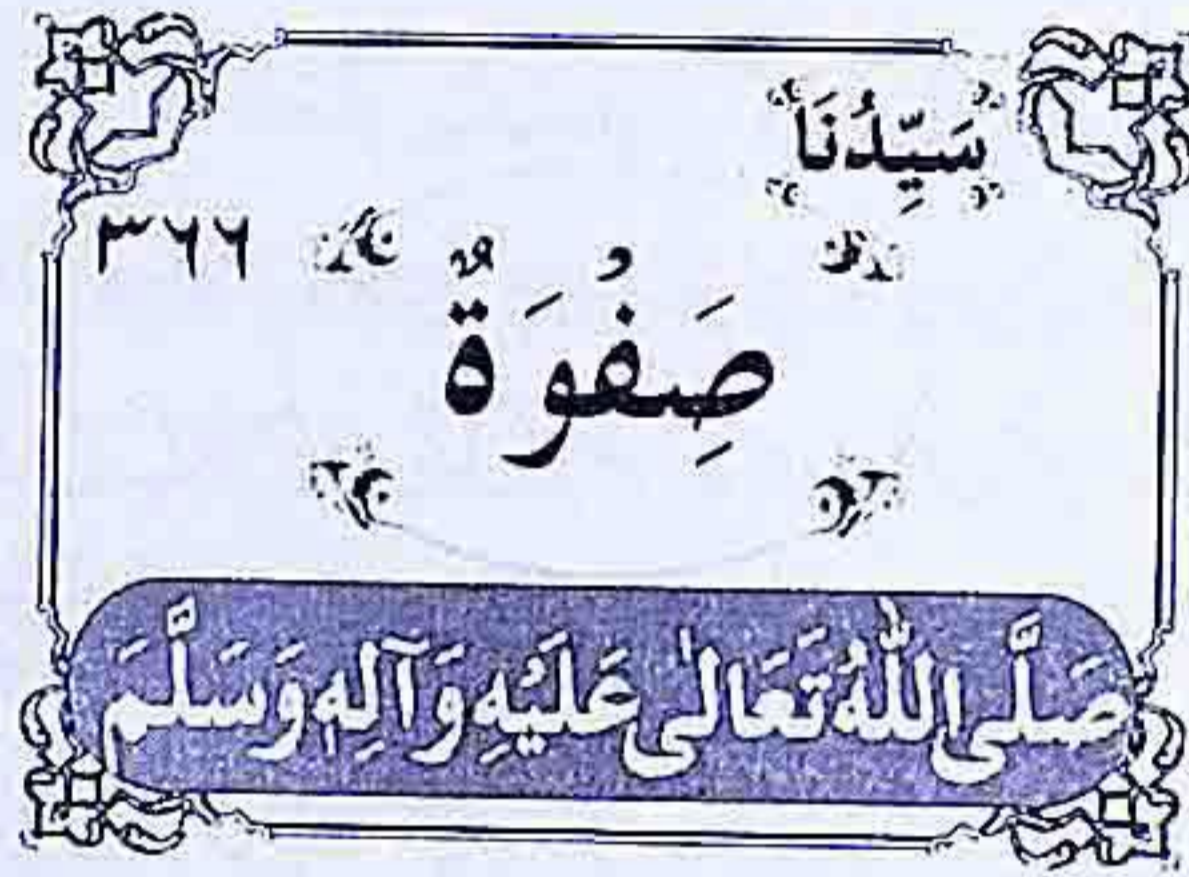 سَيِّدُنَا
٣٦٦
صِفْوَةٌ
صَلَّى اللّٰهُ تَعَالٰى عَلَيْهِ وَآلِهٖ وَسَلَّمَ